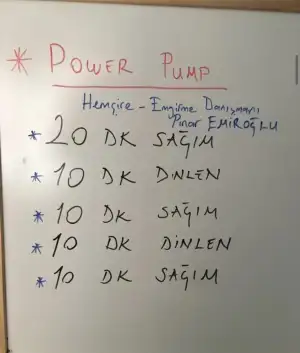 * POWER PUMP
Hemşire - Emzirme Danışmanı
Pınar EMİROĞLU
* 20 DK SAĞIM
* 10 DK DİNLEN
* 10 DK SAĞIM
* 10 DK DİNLEN
* 10 DK SAĞIM